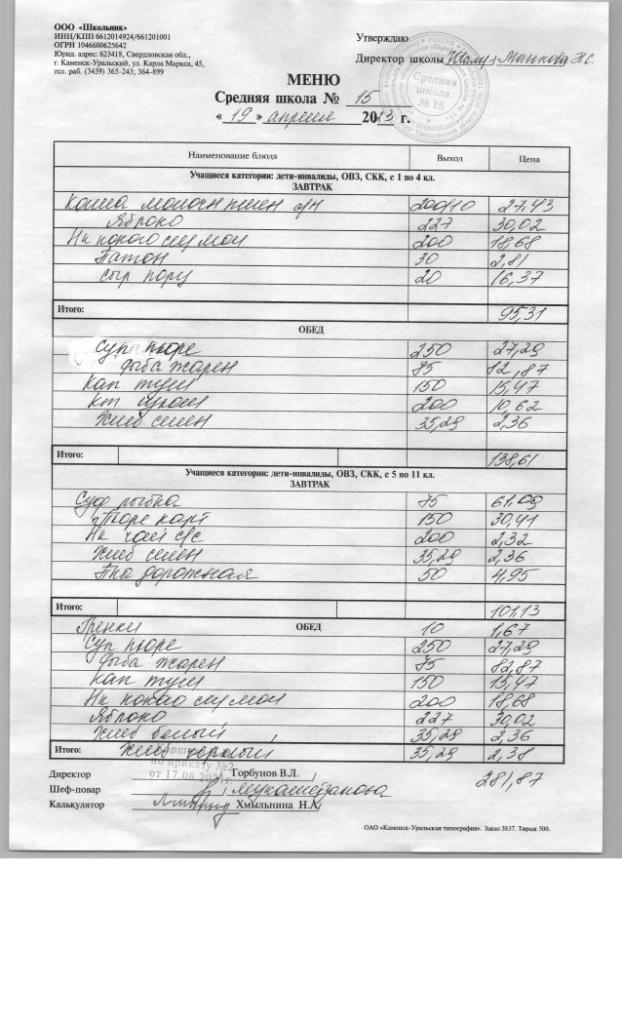 ООО «Школьник»
ИНН/КПП 6612014924/661201001
ОГРН 1046600625642
Юрид. адрес: 623418, Свердловская обл.,
г. Каменск-Уральский, ул. Кирла Маркса, 45,
тел. раб. (3439) 365-243; 364-899
Утверждаю
Директор школы
Средняя школа № 15
МЕНЮ
Средняя школа № 15
« 19 » апреля 2013 г.
Наименование блюда Выход Цена
Учащиеся категории: дети-инвалиды, ОВЗ, СКК, с 1 по 4 кл.
ЗАВТРАК
Каша молочн пшен 200/10 27,43
Яблоко 227 30,02
Нк какао сгу мол 200 18,68
Батон 30 2,81
Сыр порц 20 16,37
Итого: 95,31
ОБЕД
Суп пюре 250 27,29
Рыба жарен 75 82,87
Кап туш 150 15,47
200 10,62
Хлеб 35,29 2,36
Итого: 138,61
Учащиеся категории: дети-инвалиды, ОВЗ, СКК, с 5 по 11 кл.
ЗАВТРАК
75 61,09
Пюре карт 150 30,41
Нк чай с/с 200 2,32
Хлеб 35,29 2,36
дорожная 50 4,95
Итого: 101,13
Гренки ОБЕД 10 1,67
Суп пюре 250 27,29
Рыба жарен 75 82,87
Кап туш 150 15,47
Нк какао сгу мол 200 18,68
Яблоко 227 30,02
Хлеб белый 35,29 2,36
Итого: Хлеб черный 35,29 2,38
281,87
по приказу №2
от 17.08.202 г.
Директор Горбунов В.Л.
Шеф-повар
Калькулятор Хмыльнина Н.
ОАО «Каменск-Уральская типография». Заказ 3837. Тираж 500.